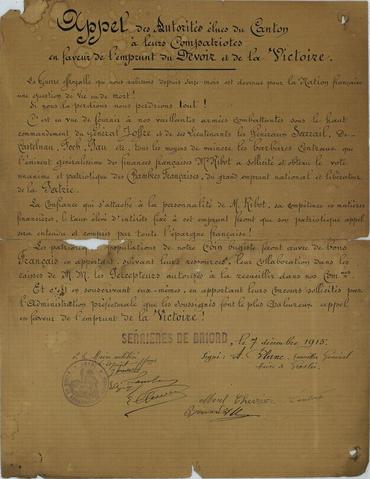 Appel des Autorités élues du Canton
à leurs Compatriotes
en faveur de l'emprunt du Devoir et de la Victoire.
La Guerre effroyable que nous subissons depuis seize mois est devenue pour la Nation française
une question de vie ou de mort!
Si nous la perdions nous perdrions tout!
C'est en vue de fournir à nos vaillantes armées combattantes sous le haut
commandement du général Joffre et de ses Lieutenants les Généraux Sarrail, De
Castelnau, Foch, Pau, etc, tous les moyens de vaincre les barbares Centraux que
l'éminent généralissime des finances françaises Mr Ribot a sollicité et obtenu le vote
unanime et patriotique des Chambres Françaises, du grand emprunt national et libérateur
de la Patrie.
La Confiance qui s'attache à la personnalité de M. Ribot, sa compétence en matières
financières, le taux élevé d'intérêts fixé à cet emprunt feront que son patriotique appel
sera entendu et compris par toute l'épargne française!
Les patriotiques populations de notre Coin bugiste feront œuvre de bons
Français en apportant, suivant leurs ressources, leur collaboration dans les
caisses de M.M. les Percepteurs autorisés à la recueillir dans nos Com.nes
Et c'est en souscrivant eux-mêmes, en apportant leur concours sollicité par
l'Administration préfectorale que les soussignés font le plus chaleureux appel
en faveur de l'emprunt de la Victoire!
SERRIERES DE BRIORD, le 7 décembre 1915.
Signé: A. Conseiller Général
Maire de